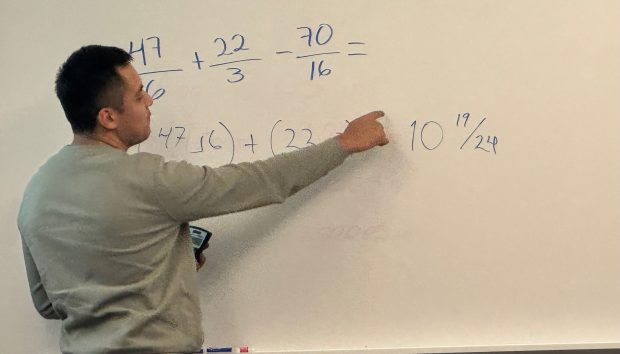 47/6 + 22/3 - 70/16 =
47 56) + (22
10 19/24